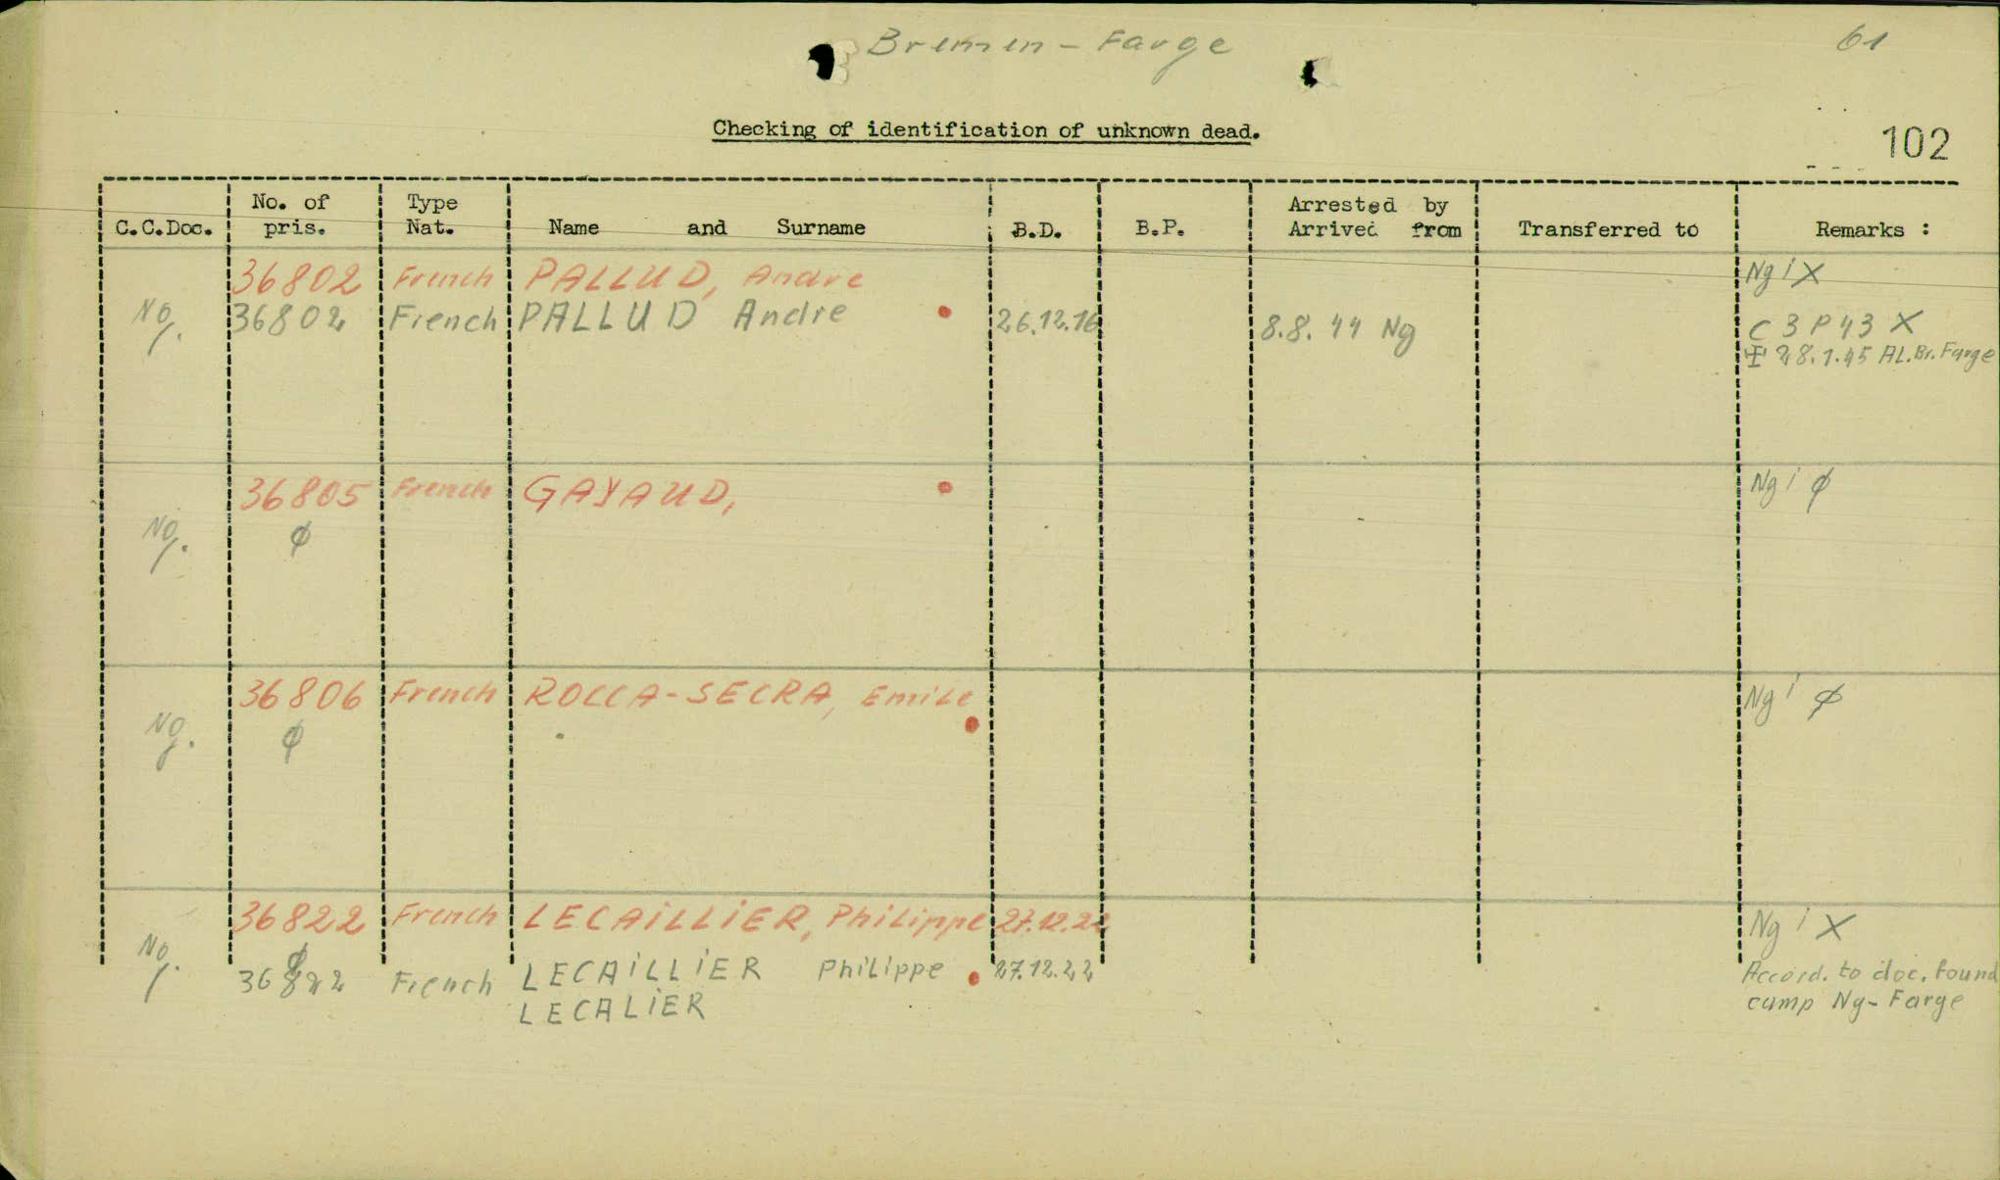 Bremen - Farge
61
Checking of identification of unknown dead.
102
C.C.Doc. No. of pris. Type Nat. Name and Surname B.D. B.P. Arrested by Arrived from Transferred to Remarks :
36802 French PALLUD, Andre Ng i X
Ng. 36802 French PALLUD Andre 26.12.16 8.8.44 Ng C 3 P 43 X
28.1.45 AL.Br. Farge
36805 French GAYAUD, Ng i ϕ
Ng. ϕ
36806 French ROCCA-SECRA, Emile Ng i ϕ
Ng. ϕ
36822 French LECAILLIER, Philippe 27.12.22 Ng i X
Ng. ϕ
36822 French LECAILLIER Philippe 27.12.22 Accord. to doc. found
LECALIER camp Ng- Farge